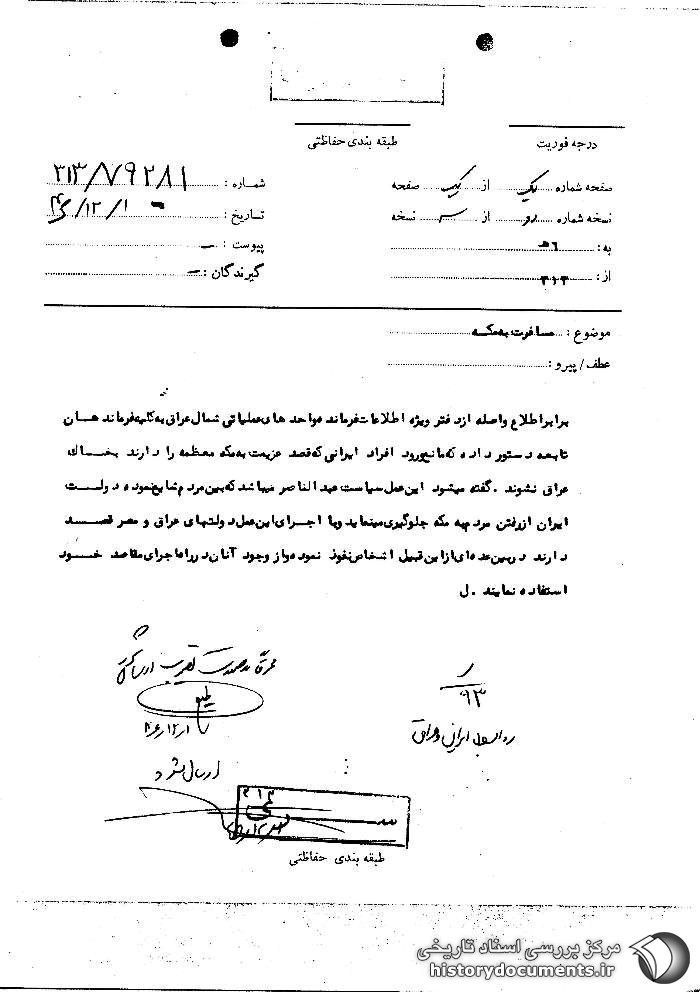 طبقه بندی حفاظتی
درجه فوریت
صفحه شماره یک از یک صفحه
شماره : ۳۱۳/۷۹۲۸۱
نسخه شماره دو از سه نسخه
تاریخ : ۴۶/۱۲/۱
به :
پیوست : -
از : ۳۱۳
گیرندگان : -
موضوع : مسافرت به مکه
عطف / پیرو :
برابر اطلاع واصله از دفتر ویژه اطلاعات فرمانده واحد های عملیاتی شمال عراق به کلیه فرماندهان
تابعه دستور داده که مانع ورود افراد ایرانی که قصد عزیمت به مکه معظمه را دارند بخاک
عراق نشوند . گفته میشود این عمل سیاست عبدالناصر میباشد که بین مردم شایع نموده دولت
ایران از رفتن مردم به مکه جلوگیری مینماید و با اجرای این عمل دولتهای عراق و مصر قصد
دارند در بین عده ای از این قبیل اشخاص نفوذ نموده و از وجود آنان در راه اجرای مقاصد خود
استفاده نمایند . ل
۹۳
روابط ایران و عراق
۴۶/۱۲/۱
ارسال شود
۳۱۳
طبقه بندی حفاظتی
مرکز بررسی اسناد تاریخی
historydocuments.ir